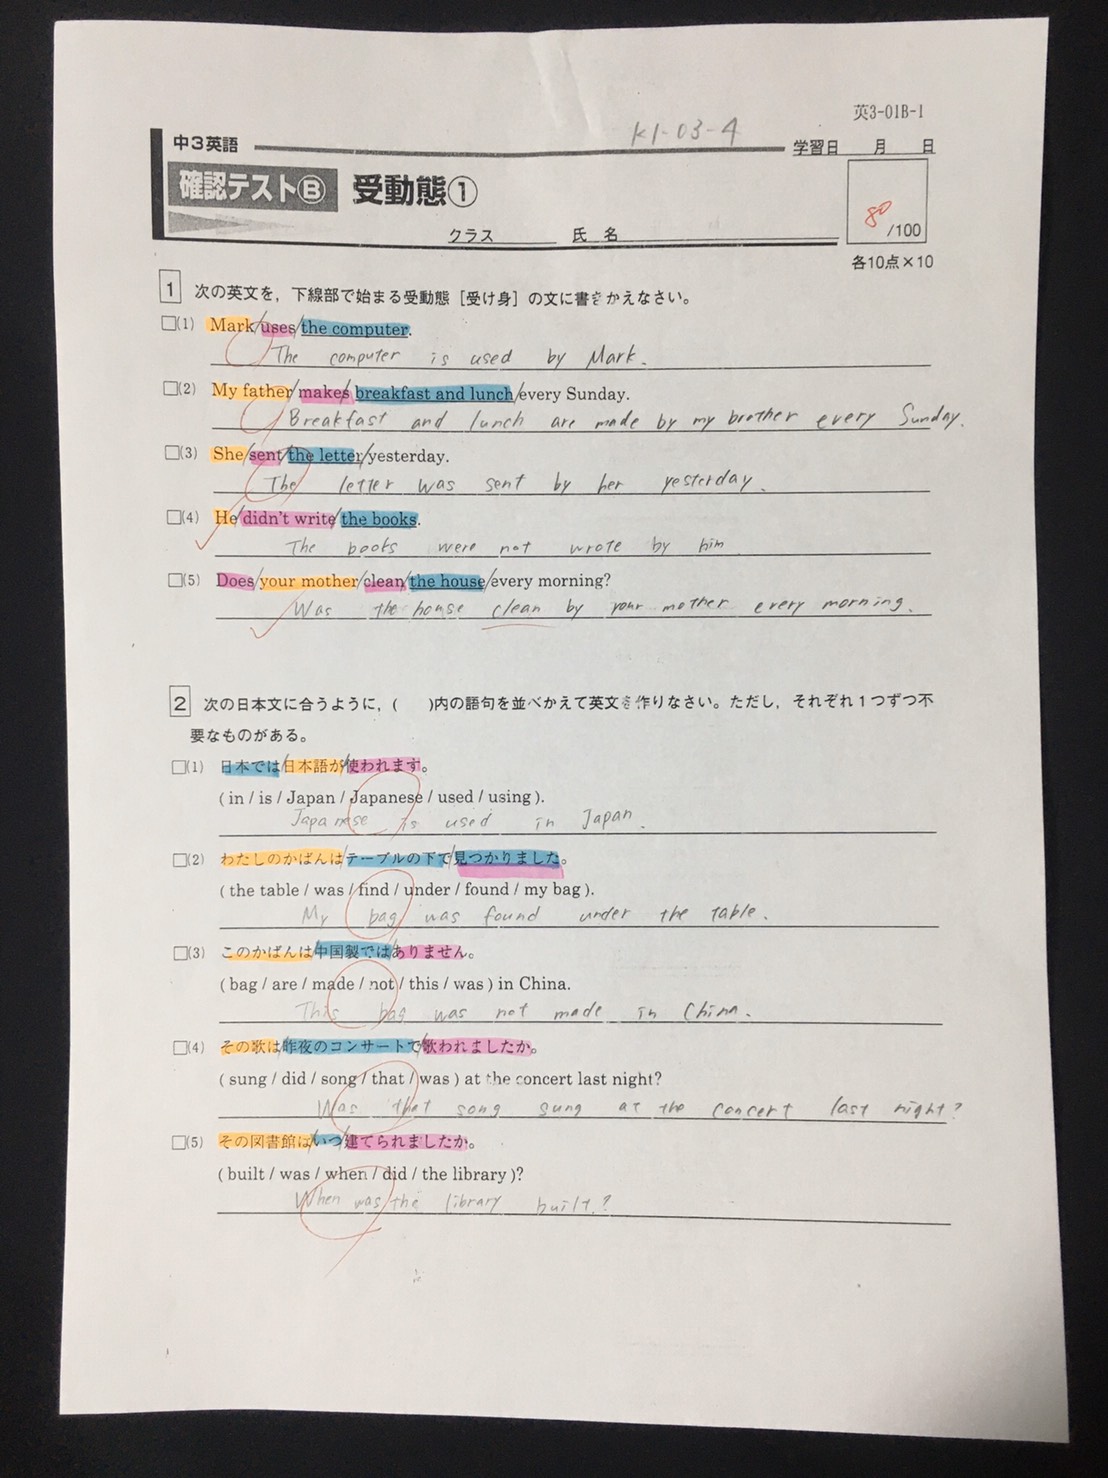 英3-01B-1
K1-03-4
中3英語
学習日 月 日
確認テストⒷ 受動態①
80
/100
クラス 氏名
各10点×10
1 次の英文を，下線部で始まる受動態［受け身］の文に書きかえなさい。
□(1) Mark/uses/the computer.
The computer is used by Mark.
□(2) My father/makes/breakfast and lunch/every Sunday.
Breakfast and lunch are made by my brother every Sunday.
□(3) She/sent/the letter/yesterday.
The letter was sent by her yesterday.
□(4) He/didn't write/the books.
The books were not wrote by him
□(5) Does/your mother/clean/the house/every morning?
Was the house clean by your mother every morning.
2 次の日本文に合うように，(　　)内の語句を並べかえて英文を作りなさい。ただし，それぞれ1つずつ不
要なものがある。
□(1) 日本では/日本語が/使われます。
( in / is / Japan / Japanese / used / using ).
Japanese is used in Japan.
□(2) わたしのかばんは/テーブルの下で/見つかりました。
( the table / was / find / under / found / my bag ).
My bag was found under the table.
□(3) このかばんは/中国製では/ありません。
( bag / are / made / not / this / was ) in China.
This bag was not made in China.
□(4) その歌は/昨夜のコンサートで/歌われましたか。
( sung / did / song / that / was ) at the concert last night?
Was that song sung at the concert last night?
□(5) その図書館は/いつ/建てられましたか。
( built / was / when / did / the library )?
When was the library built.?